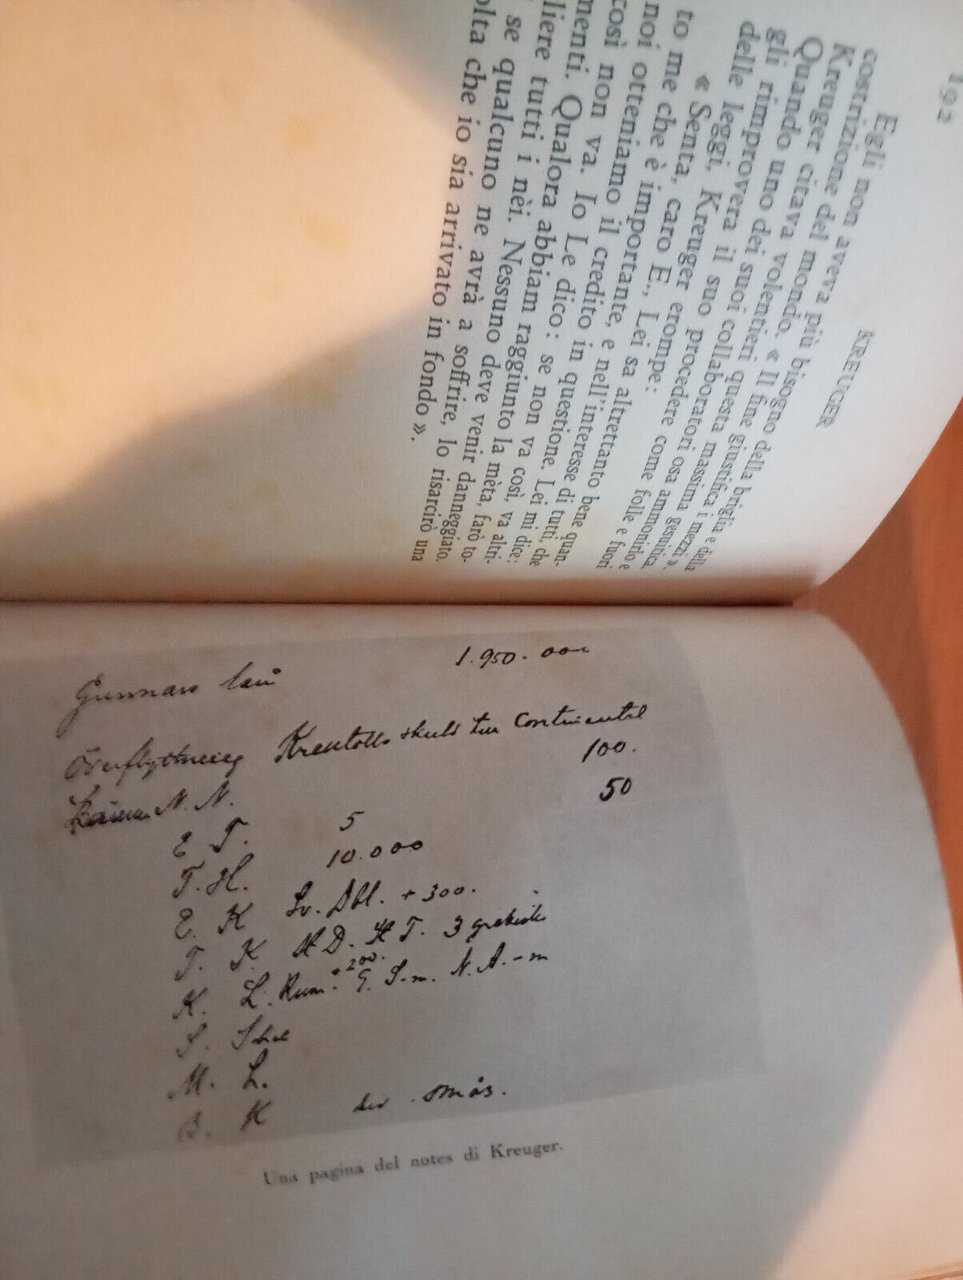 192
KREUGER
Egli non aveva più bisogno della briglia e della
costrizione del mondo.
Kreuger citava volentieri questa massima gesuitica.
Quando uno dei suoi collaboratori osa ammonirlo e
gli rimprovera il suo procedere come folle e fuori
delle leggi, Kreuger erompe:
« Senta, caro E., Lei sa altrettanto bene quan-
to me che è importante, e nell'interesse di tutti, che
noi otteniamo il credito in questione. Lei mi dice:
così non va. Io Le dico: se non va così, va altri-
menti. Qualora abbiam raggiunto la mèta, farò to-
gliere tutti i nèi. Nessuno deve venir danneggiato.
E se qualcuno ne avrà a soffrire, lo risarcirò una
volta che io sia arrivato in fondo ».
1.950.000
Överflyttning Kreutolls skuld till Continental
N. N. 100.
E T. 5 50
T. H. 10.000
E. K Sv. Dbl. + 300.
T. K
K. L. Rum:
S.
M. L.
B. K
Una pagina del notes di Kreuger.